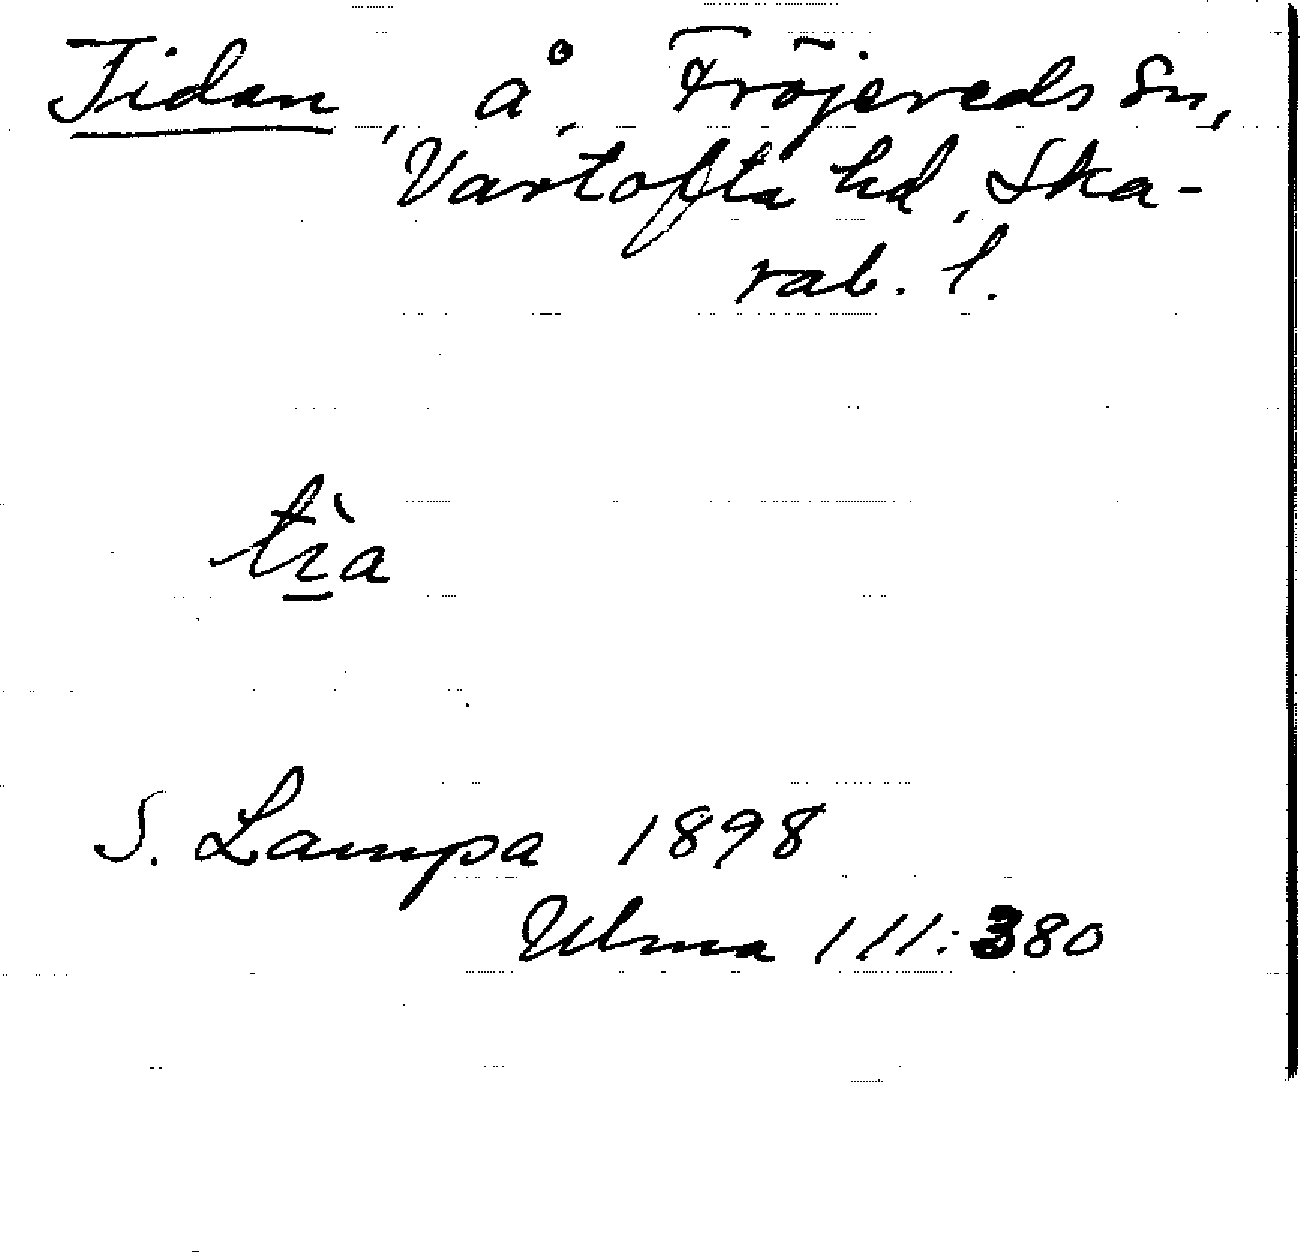 Tidan, å, Fröjereds sn,
Vartofta hd, Ska-
rab. l.
tìa
S. Lampa 1898
Ulma 111:380